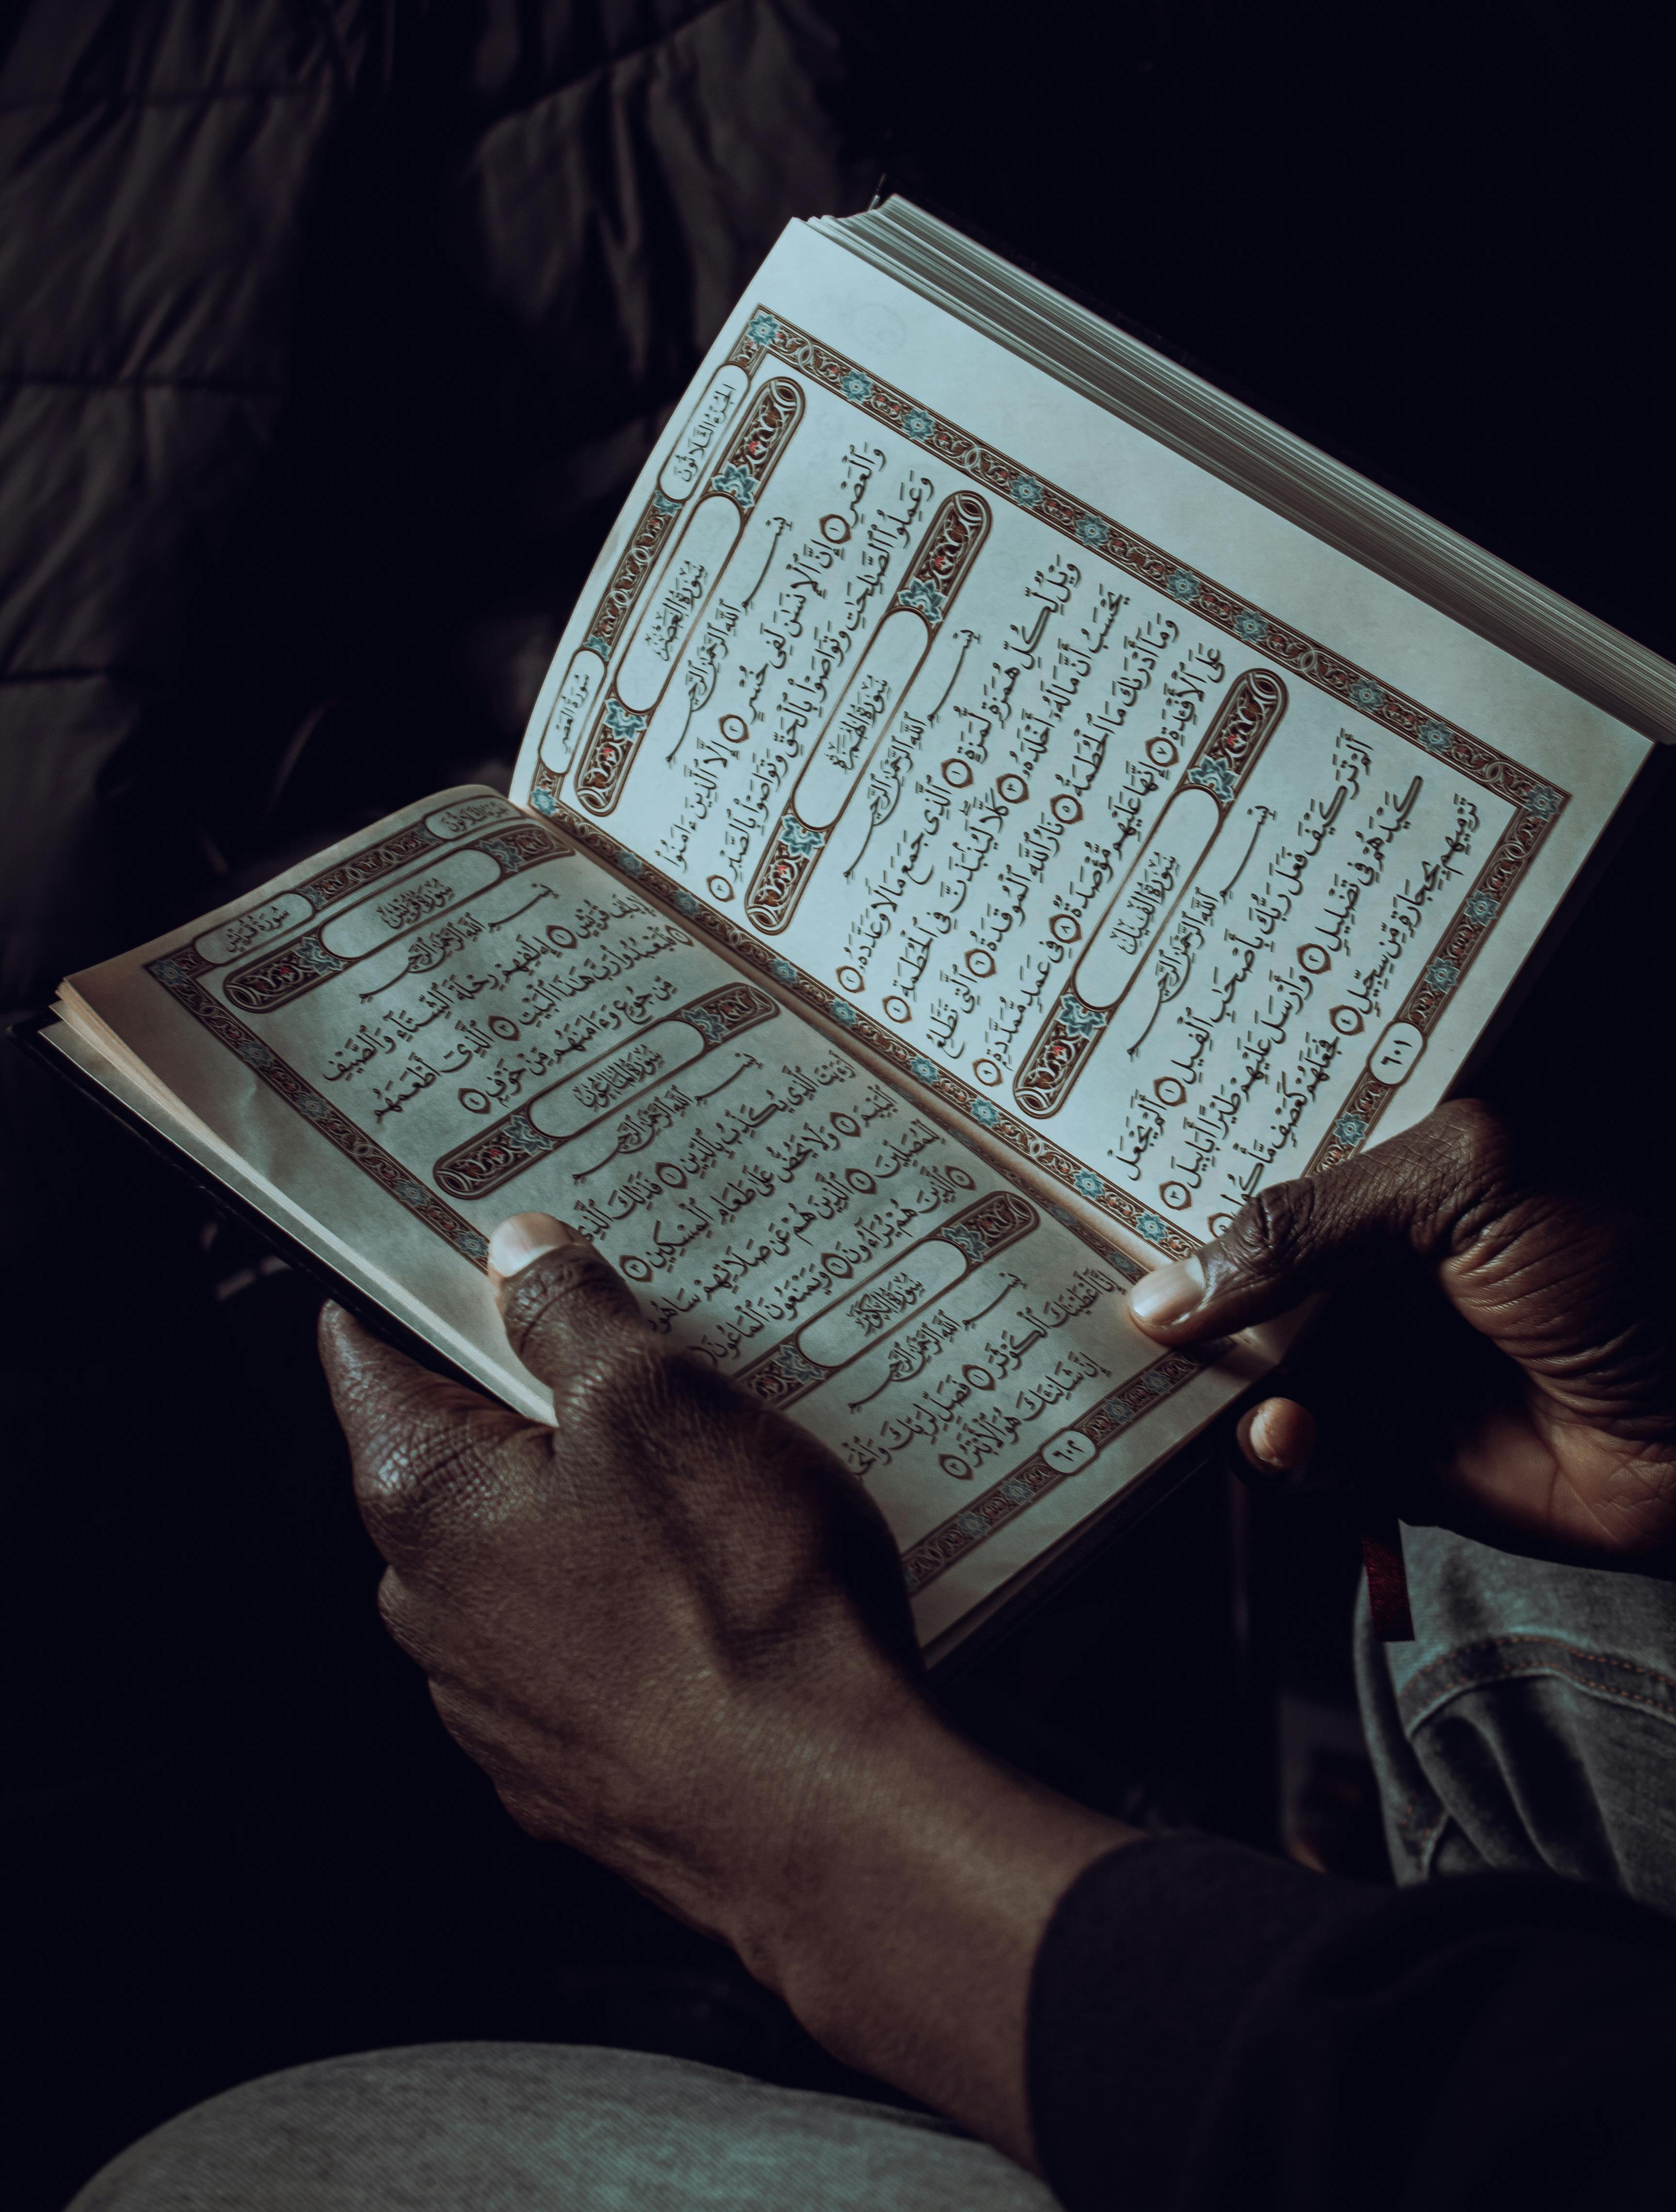 الجُزْءُ الثَّلَاثُونَ سُورَةُ العَصْرِ
سُورَةُ العَصْرِ
بِسْمِ ٱللَّهِ ٱلرَّحْمَٰنِ ٱلرَّحِيمِ
وَٱلْعَصْرِ ١ إِنَّ ٱلْإِنسَٰنَ لَفِى خُسْرٍ ٢ إِلَّا ٱلَّذِينَ ءَامَنُوا۟
وَعَمِلُوا۟ ٱلصَّٰلِحَٰتِ وَتَوَاصَوْا۟ بِٱلْحَقِّ وَتَوَاصَوْا۟ بِٱلصَّبْرِ ٣
سُورَةُ الهُمَزَةِ
بِسْمِ ٱللَّهِ ٱلرَّحْمَٰنِ ٱلرَّحِيمِ
وَيْلٌ لِّكُلِّ هُمَزَةٍ لُّمَزَةٍ ١ ٱلَّذِى جَمَعَ مَالًا وَعَدَّدَهُۥ ٢
يَحْسَبُ أَنَّ مَالَهُۥٓ أَخْلَدَهُۥ ٣ كَلَّا لَيُنۢبَذَنَّ فِى ٱلْحُطَمَةِ ٤
وَمَآ أَدْرَىٰكَ مَا ٱلْحُطَمَةُ ٥ نَارُ ٱللَّهِ ٱلْمُوقَدَةُ ٦ ٱلَّتِى تَطَّلِعُ
عَلَى ٱلْأَفْـِٔدَةِ ٧ إِنَّهَا عَلَيْهِم مُّؤْصَدَةٌ ٨ فِى عَمَدٍ مُّمَدَّدَةٍۭ ٩
سُورَةُ الفِيلِ
بِسْمِ ٱللَّهِ ٱلرَّحْمَٰنِ ٱلرَّحِيمِ
أَلَمْ تَرَ كَيْفَ فَعَلَ رَبُّكَ بِأَصْحَٰبِ ٱلْفِيلِ ١ أَلَمْ يَجْعَلْ
كَيْدَهُمْ فِى تَضْلِيلٍ ٢ وَأَرْسَلَ عَلَيْهِمْ طَيْرًا أَبَابِيلَ ٣
تَرْمِيهِم بِحِجَارَةٍ مِّن سِجِّيلٍ ٤ فَجَعَلَهُمْ كَعَصْفٍ مَّأْكُولٍۭ
٦٠١
الجُزْءُ الثَّلَاثُونَ سُورَةُ قُرَيْشٍ
سُورَةُ قُرَيْشٍ
بِسْمِ ٱللَّهِ ٱلرَّحْمَٰنِ ٱلرَّحِيمِ
لِإِيلَٰفِ قُرَيْشٍ ١ إِۦلَٰفِهِمْ رِحْلَةَ ٱلشِّتَآءِ وَٱلصَّيْفِ
٢ فَلْيَعْبُدُوا۟ رَبَّ هَٰذَا ٱلْبَيْتِ ٣ ٱلَّذِىٓ أَطْعَمَهُم
مِّن جُوعٍ وَءَامَنَهُم مِّنْ خَوْفٍۭ ٤
سُورَةُ المَاعُونِ
بِسْمِ ٱللَّهِ ٱلرَّحْمَٰنِ ٱلرَّحِيمِ
أَرَءَيْتَ ٱلَّذِى يُكَذِّبُ بِٱلدِّينِ ١ فَذَٰلِكَ ٱلَّذِى
ٱلْيَتِيمَ ٢ وَلَا يَحُضُّ عَلَىٰ طَعَامِ ٱلْمِسْكِينِ ٣
لِّلْمُصَلِّينَ ٤ ٱلَّذِينَ هُمْ عَن صَلَاتِهِمْ سَاهُونَ
٥ ٱلَّذِينَ هُمْ يُرَآءُونَ ٦ وَيَمْنَعُونَ ٱلْمَاعُونَ
سُورَةُ الكَوْثَرِ
بِسْمِ ٱللَّهِ ٱلرَّحْمَٰنِ ٱلرَّحِيمِ
إِنَّآ أَعْطَيْنَٰكَ ٱلْكَوْثَرَ ١ فَصَلِّ لِرَبِّكَ وَٱنْحَرْ
إِنَّ شَانِئَكَ هُوَ ٱلْأَبْتَرُ ٣
٦٠٢